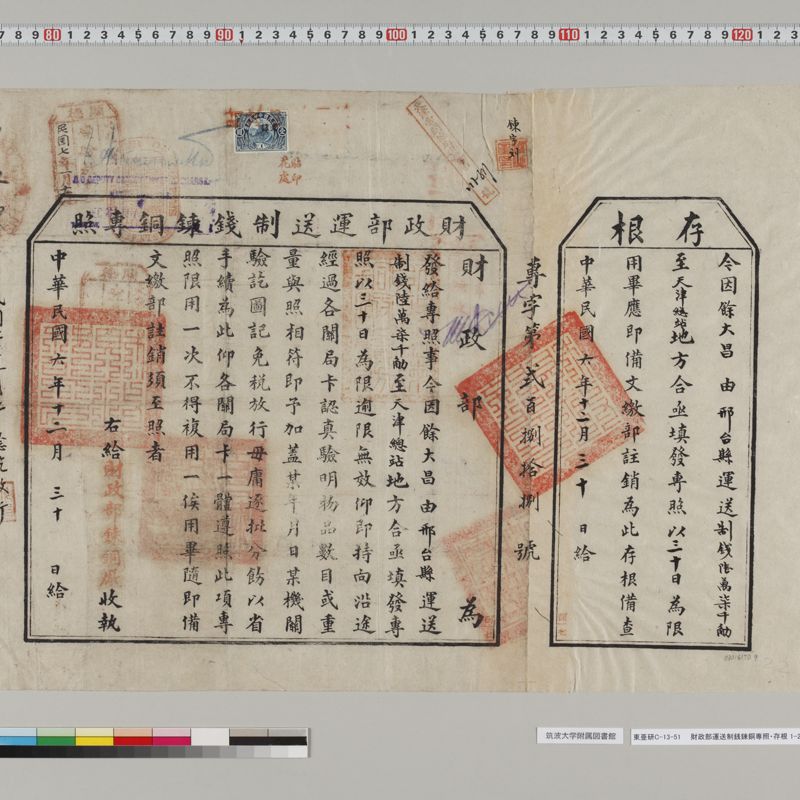 存根
今因餘大昌 由 邢台縣 運送 制錢陸萬柒千觔
至 天津總站 地方合亟填發專照 以三十日為限
用畢應即備文繳部註銷為此存根備查
中華民國 六 年 十二 月 三十 日給
專字第 弍 百 捌 拾 捌 號
財政部運送制錢鍊銅專照
財政部 為
發給專照事今因餘大昌 由 邢台縣 運送
制錢陸萬柒千觔 至 天津總站 地方合亟填發專
照以三十日為限逾限無效仰即持向沿途
經過各關局卡認真驗明物品數目或重
量與照相符即予加蓋某年月日某機關
驗訖圖記免稅放行毋庸逐批分飭以省
手續為此仰各關局卡一體遵照此項專
照限用一次不得複用一俟用畢隨即備
文繳部註銷須至照者
右給財政部鍊銅廠 收執
中華民國 六 年 十二 月 三十 日給
80 90 100 110 120
筑波大学附属図書館
東亜研C-13-51 財政部運送制銭錬銅専照・存根 1-2